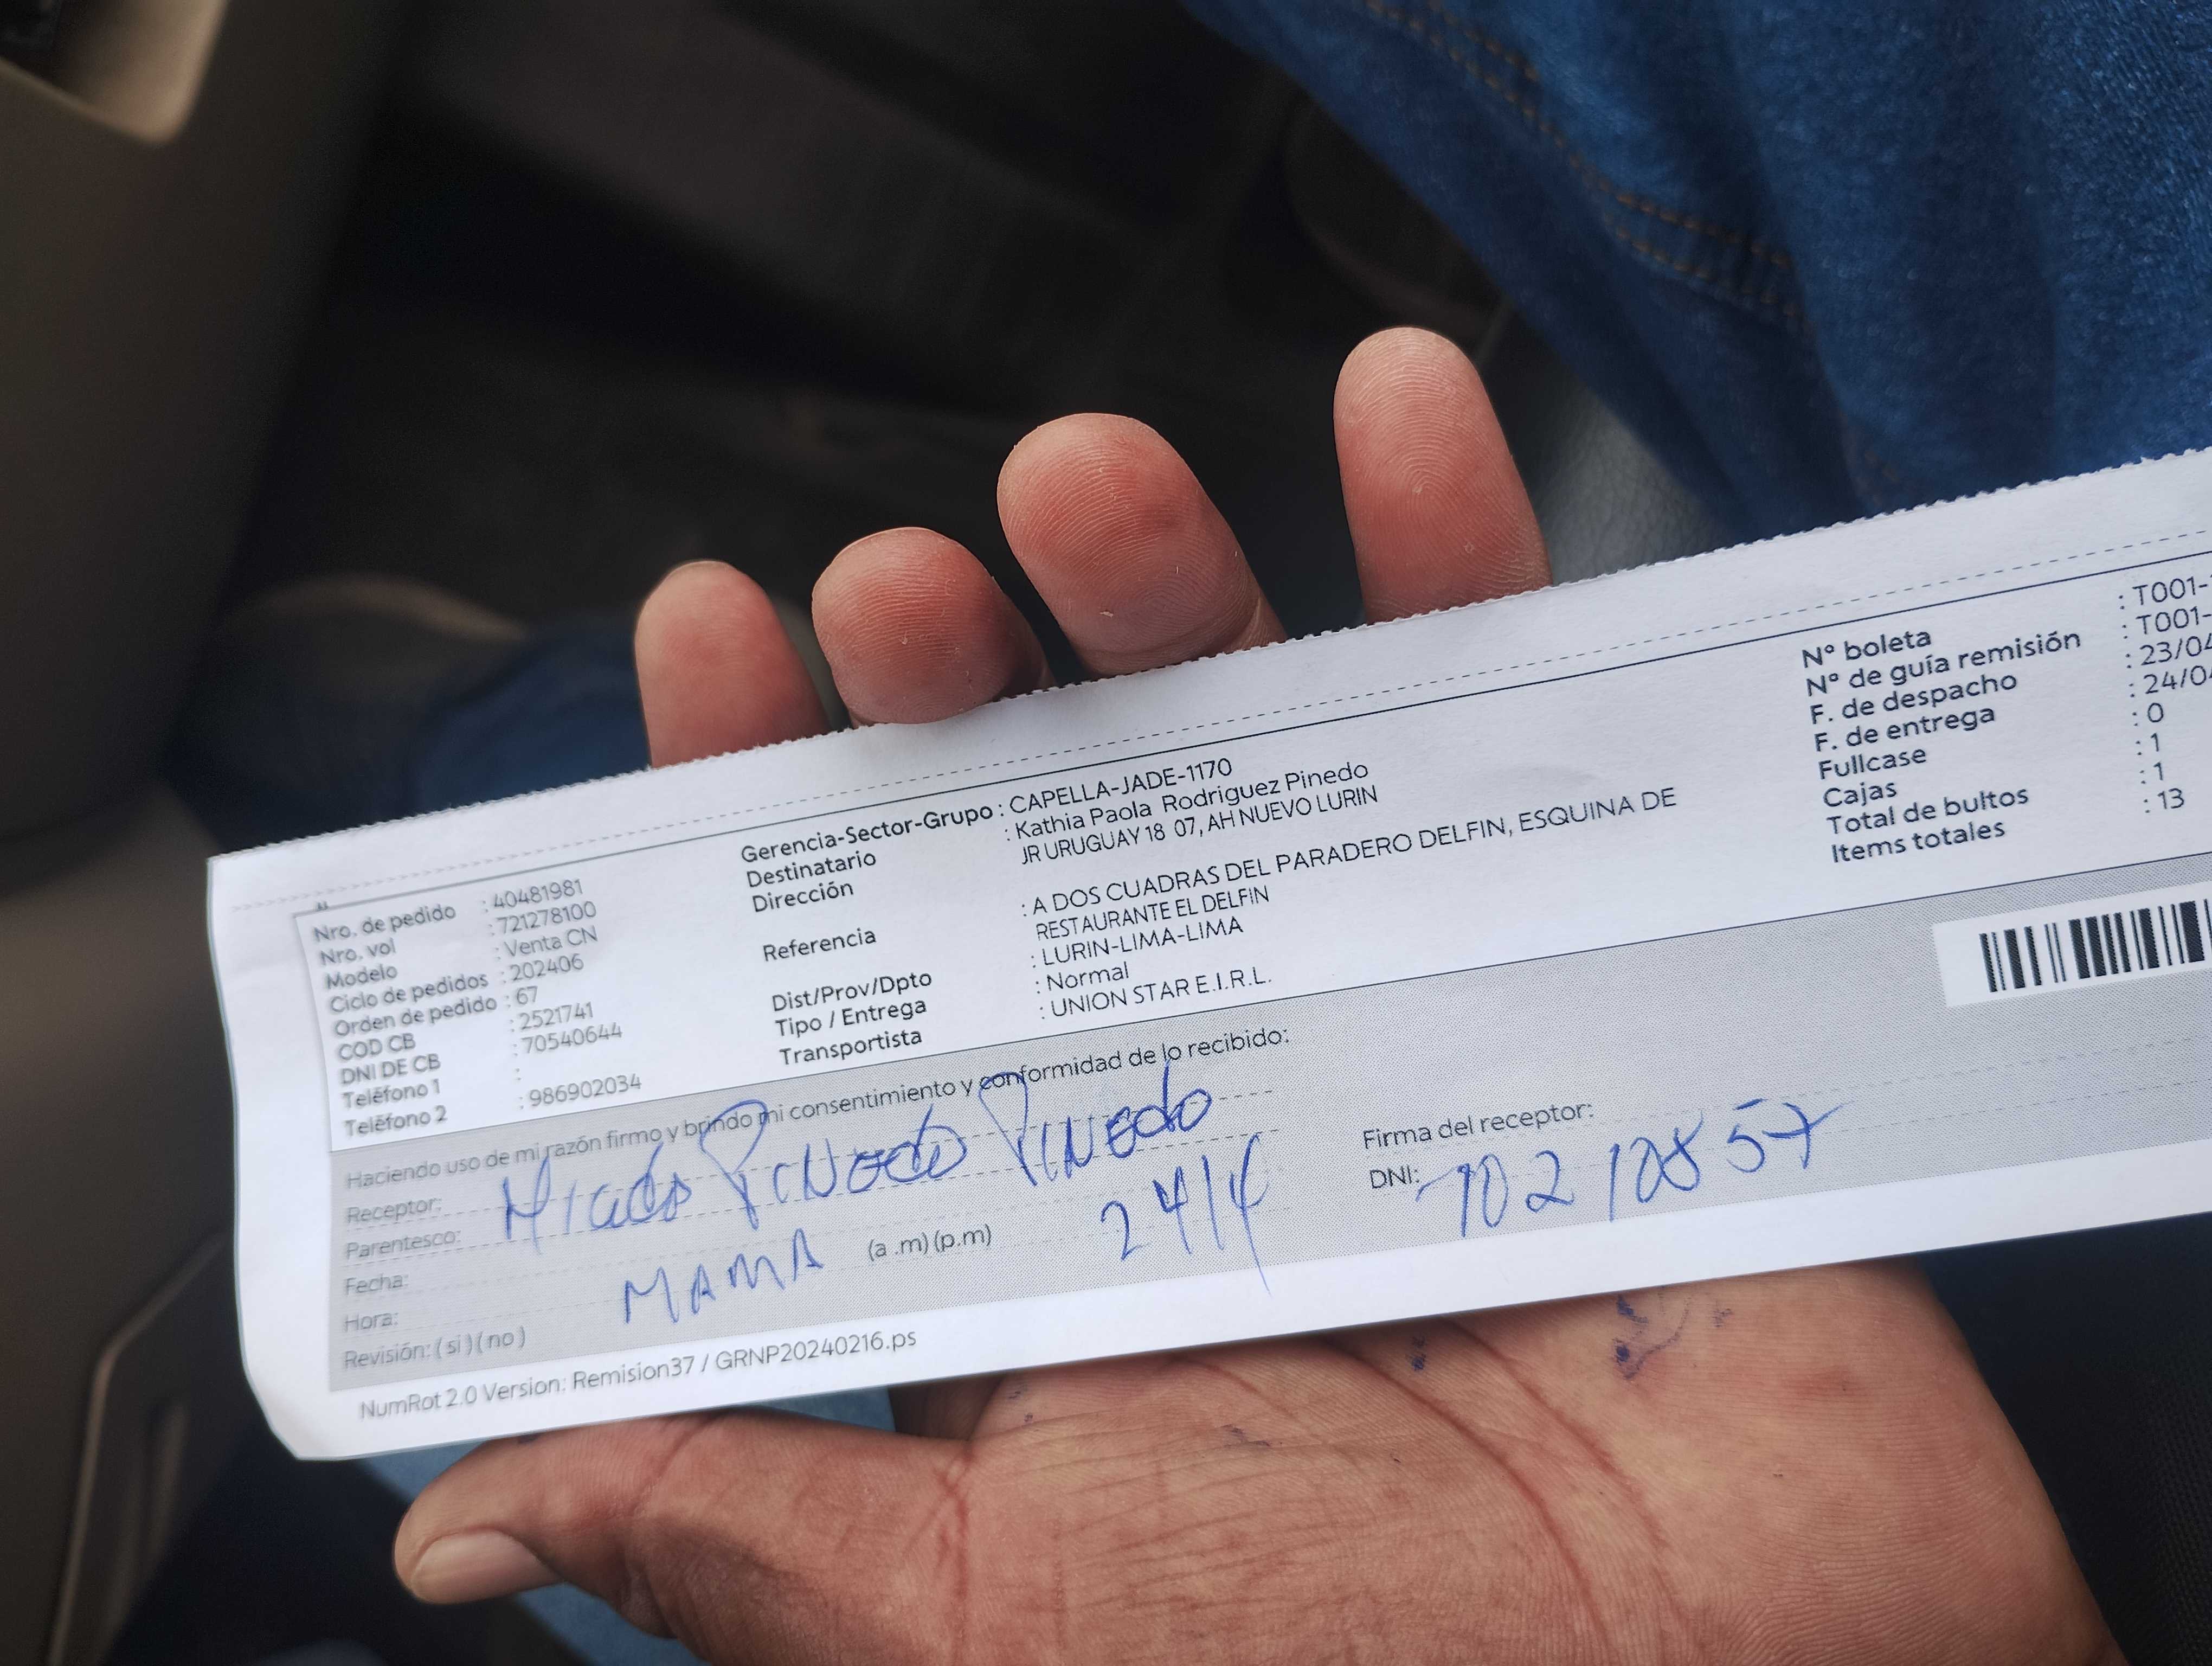 Nro. de pedido : 40481981
Nro. vol : 721278100
Modelo : Venta CN
Ciclo de pedidos : 202406
Orden de pedido : 67
COD CB : 2521741
DNI DE CB : 70540644
Teléfono 1 :
Teléfono 2 : 986902034
Gerencia-Sector-Grupo : CAPELLA-JADE-1170
Destinatario : Kathia Paola Rodriguez Pinedo
Dirección JR URUGUAY 18 07, AH NUEVO LURIN
Referencia : A DOS CUADRAS DEL PARADERO DELFIN, ESQUINA DE
RESTAURANTE EL DELFIN
Dist/Prov/Dpto : LURIN-LIMA-LIMA
Tipo / Entrega : Normal
Transportista : UNION STAR E.I.R.L.
Nº boleta : T001-
Nº de guía remisión : T001-
F. de despacho : 23/04
F. de entrega : 24/04
Fullcase : 0
Cajas : 1
Total de bultos : 1
Items totales : 13
Haciendo uso de mi razón firmo y brindo mi consentimiento y conformidad de lo recibido:
Receptor: Pinedo Pinedo
Parentesco: MAMA
Fecha: 24/4
Hora: (a .m) (p.m)
Revisión: ( si ) ( no )
Firma del receptor:
DNI:
NumRot 2.0 Version: Remision37 / GRNP20240216.ps